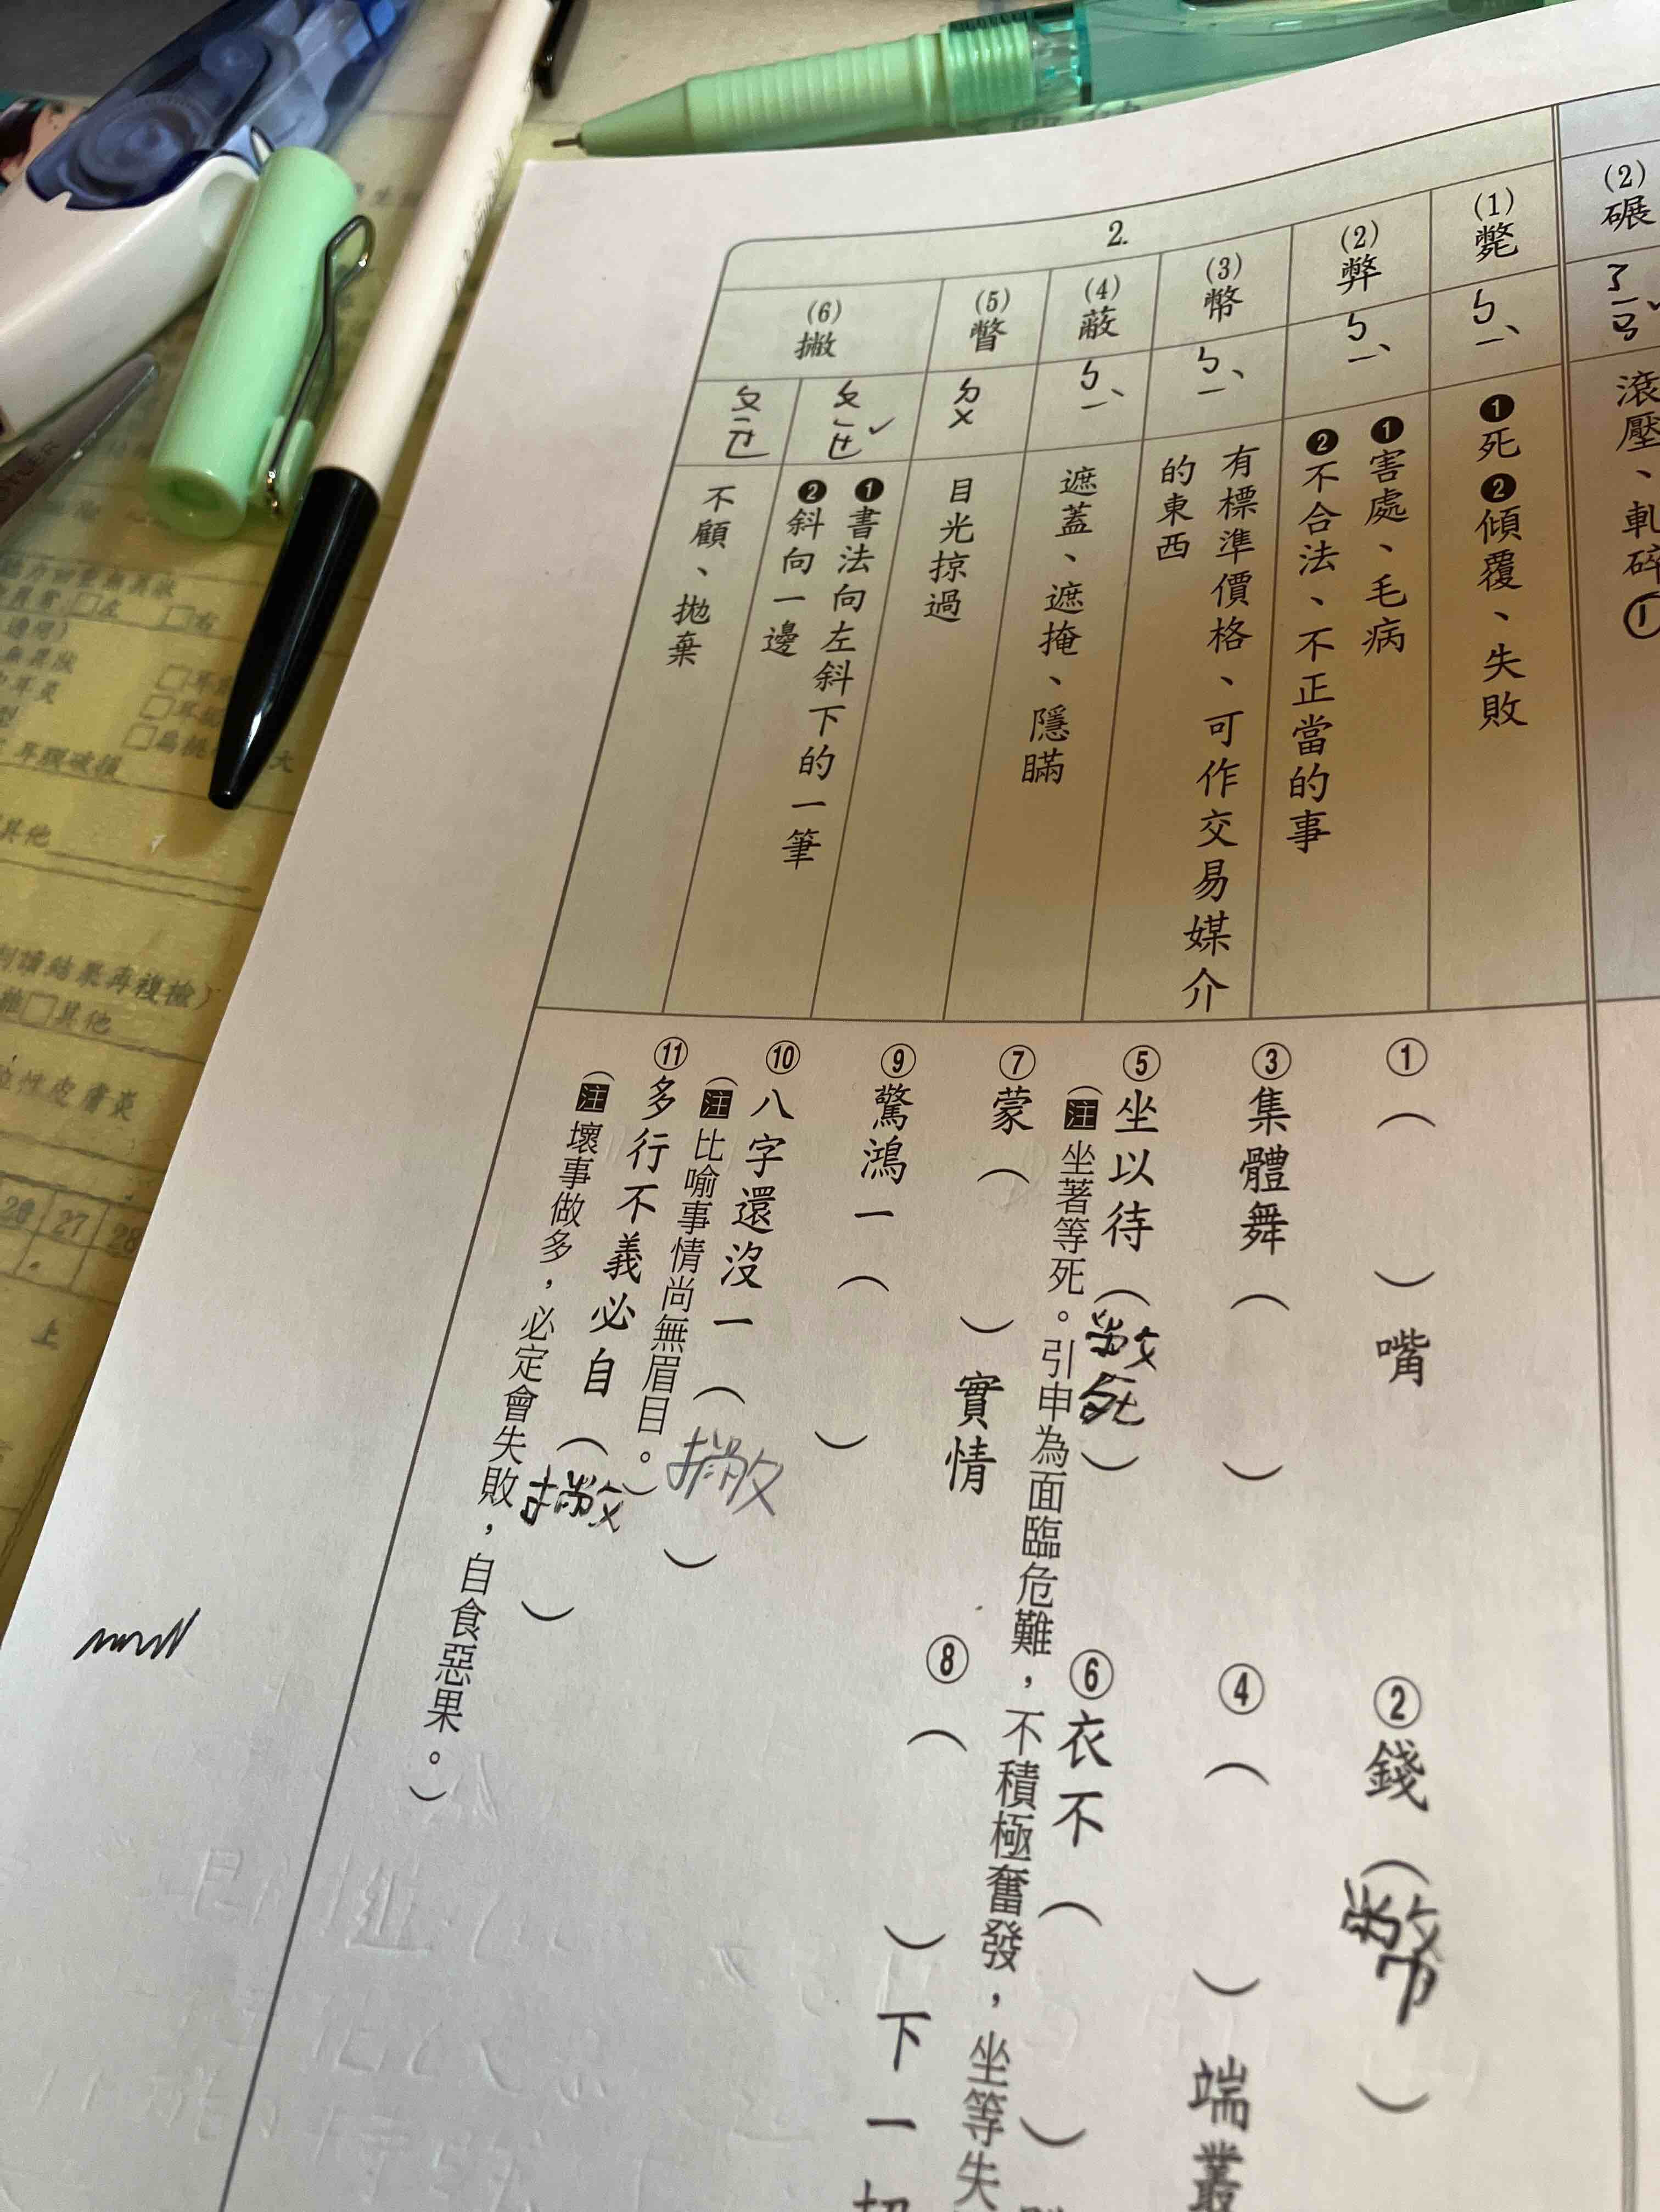 (2)碾
ㄋㄧㄢˇ
滾壓、軋碎①
2.
(1)斃
ㄅㄧˋ
❶死❷傾覆、失敗
(2)弊
ㄅㄧˋ
❶害處、毛病
❷不合法、不正當的事
(3)幣
ㄅㄧˋ
有標準價格、可作交易媒介
的東西
(4)蔽
ㄅㄧˋ
遮蓋、遮掩、隱瞞
(5)瞥
ㄆㄨ
目光掠過
(6)撇
ㄆㄧㄝˇ
❶書法向左斜下的一筆
❷斜向一邊
ㄆㄧㄝ
不顧、拋棄
①( )嘴
②錢(幣)
③集體舞( )
④( )端叢
⑤坐以待(斃)
(注坐著等死。引申為面臨危難,不積極奮發,坐等失
⑥衣不( )
⑦蒙( )實情
⑧( )下一切
⑨驚鴻一( )
⑩八字還沒一(撇)
(注比喻事情尚無眉目。)
⑪多行不義必自(撇)
(注壞事做多,必定會失敗,自食惡果。)
左
右
其他
判讀結果再複檢)
其他
27
28
上